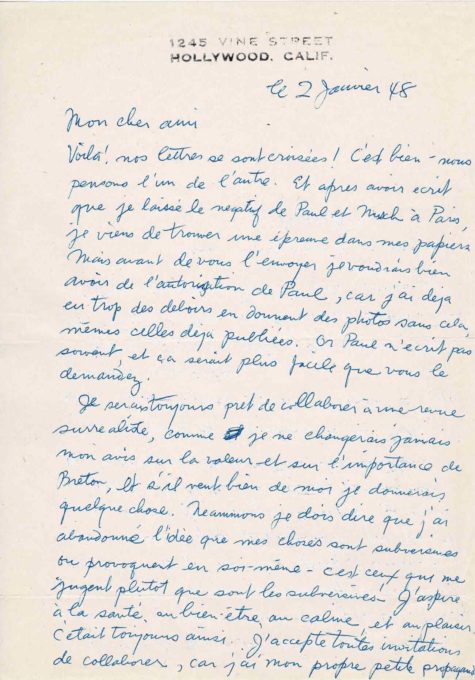 1245 VINE STREET
HOLLYWOOD, CALIF.
le 2 Janvier 48
Mon cher ami
Voilà! nos lettres se sont croisées! C'est bien - nous
pensons l'un de l'autre. Et apres avoir ecrit
que je laissé le negatif de Paul et Nusch à Paris,
je viens de trouver une épreuve dans mes papiers.
Mais avant de vous l'envoyer je voudrais bien
avoir de l'autorisation de Paul, car j'ai deja
eu trop des deboirs en donnant des photos sans cela,
mêmes celles déja publiées. Or Paul n'ecrit pas
souvent, et ça serait plus facile que vous le
demandez.
Je serais toujours pret de collaborer à une revue
surrealiste, comme je ne changerais jamais
mon avis sur la valeur et sur l'importance de
Breton, et s'il veut bien de moi je donnerais
quelque chose. Neammons je dois dire que j'ai
abandonné l'idée que mes choses sont subversives
ou provoquent en soi-même - c'est ceux qui me
jugent plutot que sont les subversives. J'aspire
à la santé, au bien-être, au calme, et au plaisir,
c'était toujours ainsi. J'accepte toutes invitations
de collaborer, car j'ai mon propre petite propagand